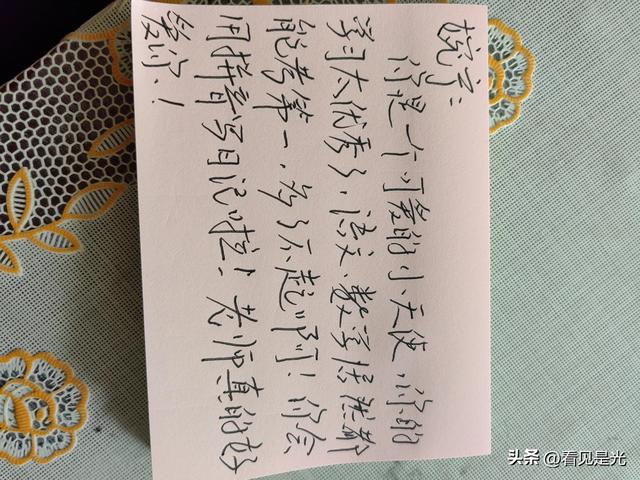 你是一个可爱的小天使，你的
学习太优秀了，语文、数学居然都
能考第一，多了不起啊！你会
用拼音写日记啦！老师真的好
爱你！
头条 @看见是光